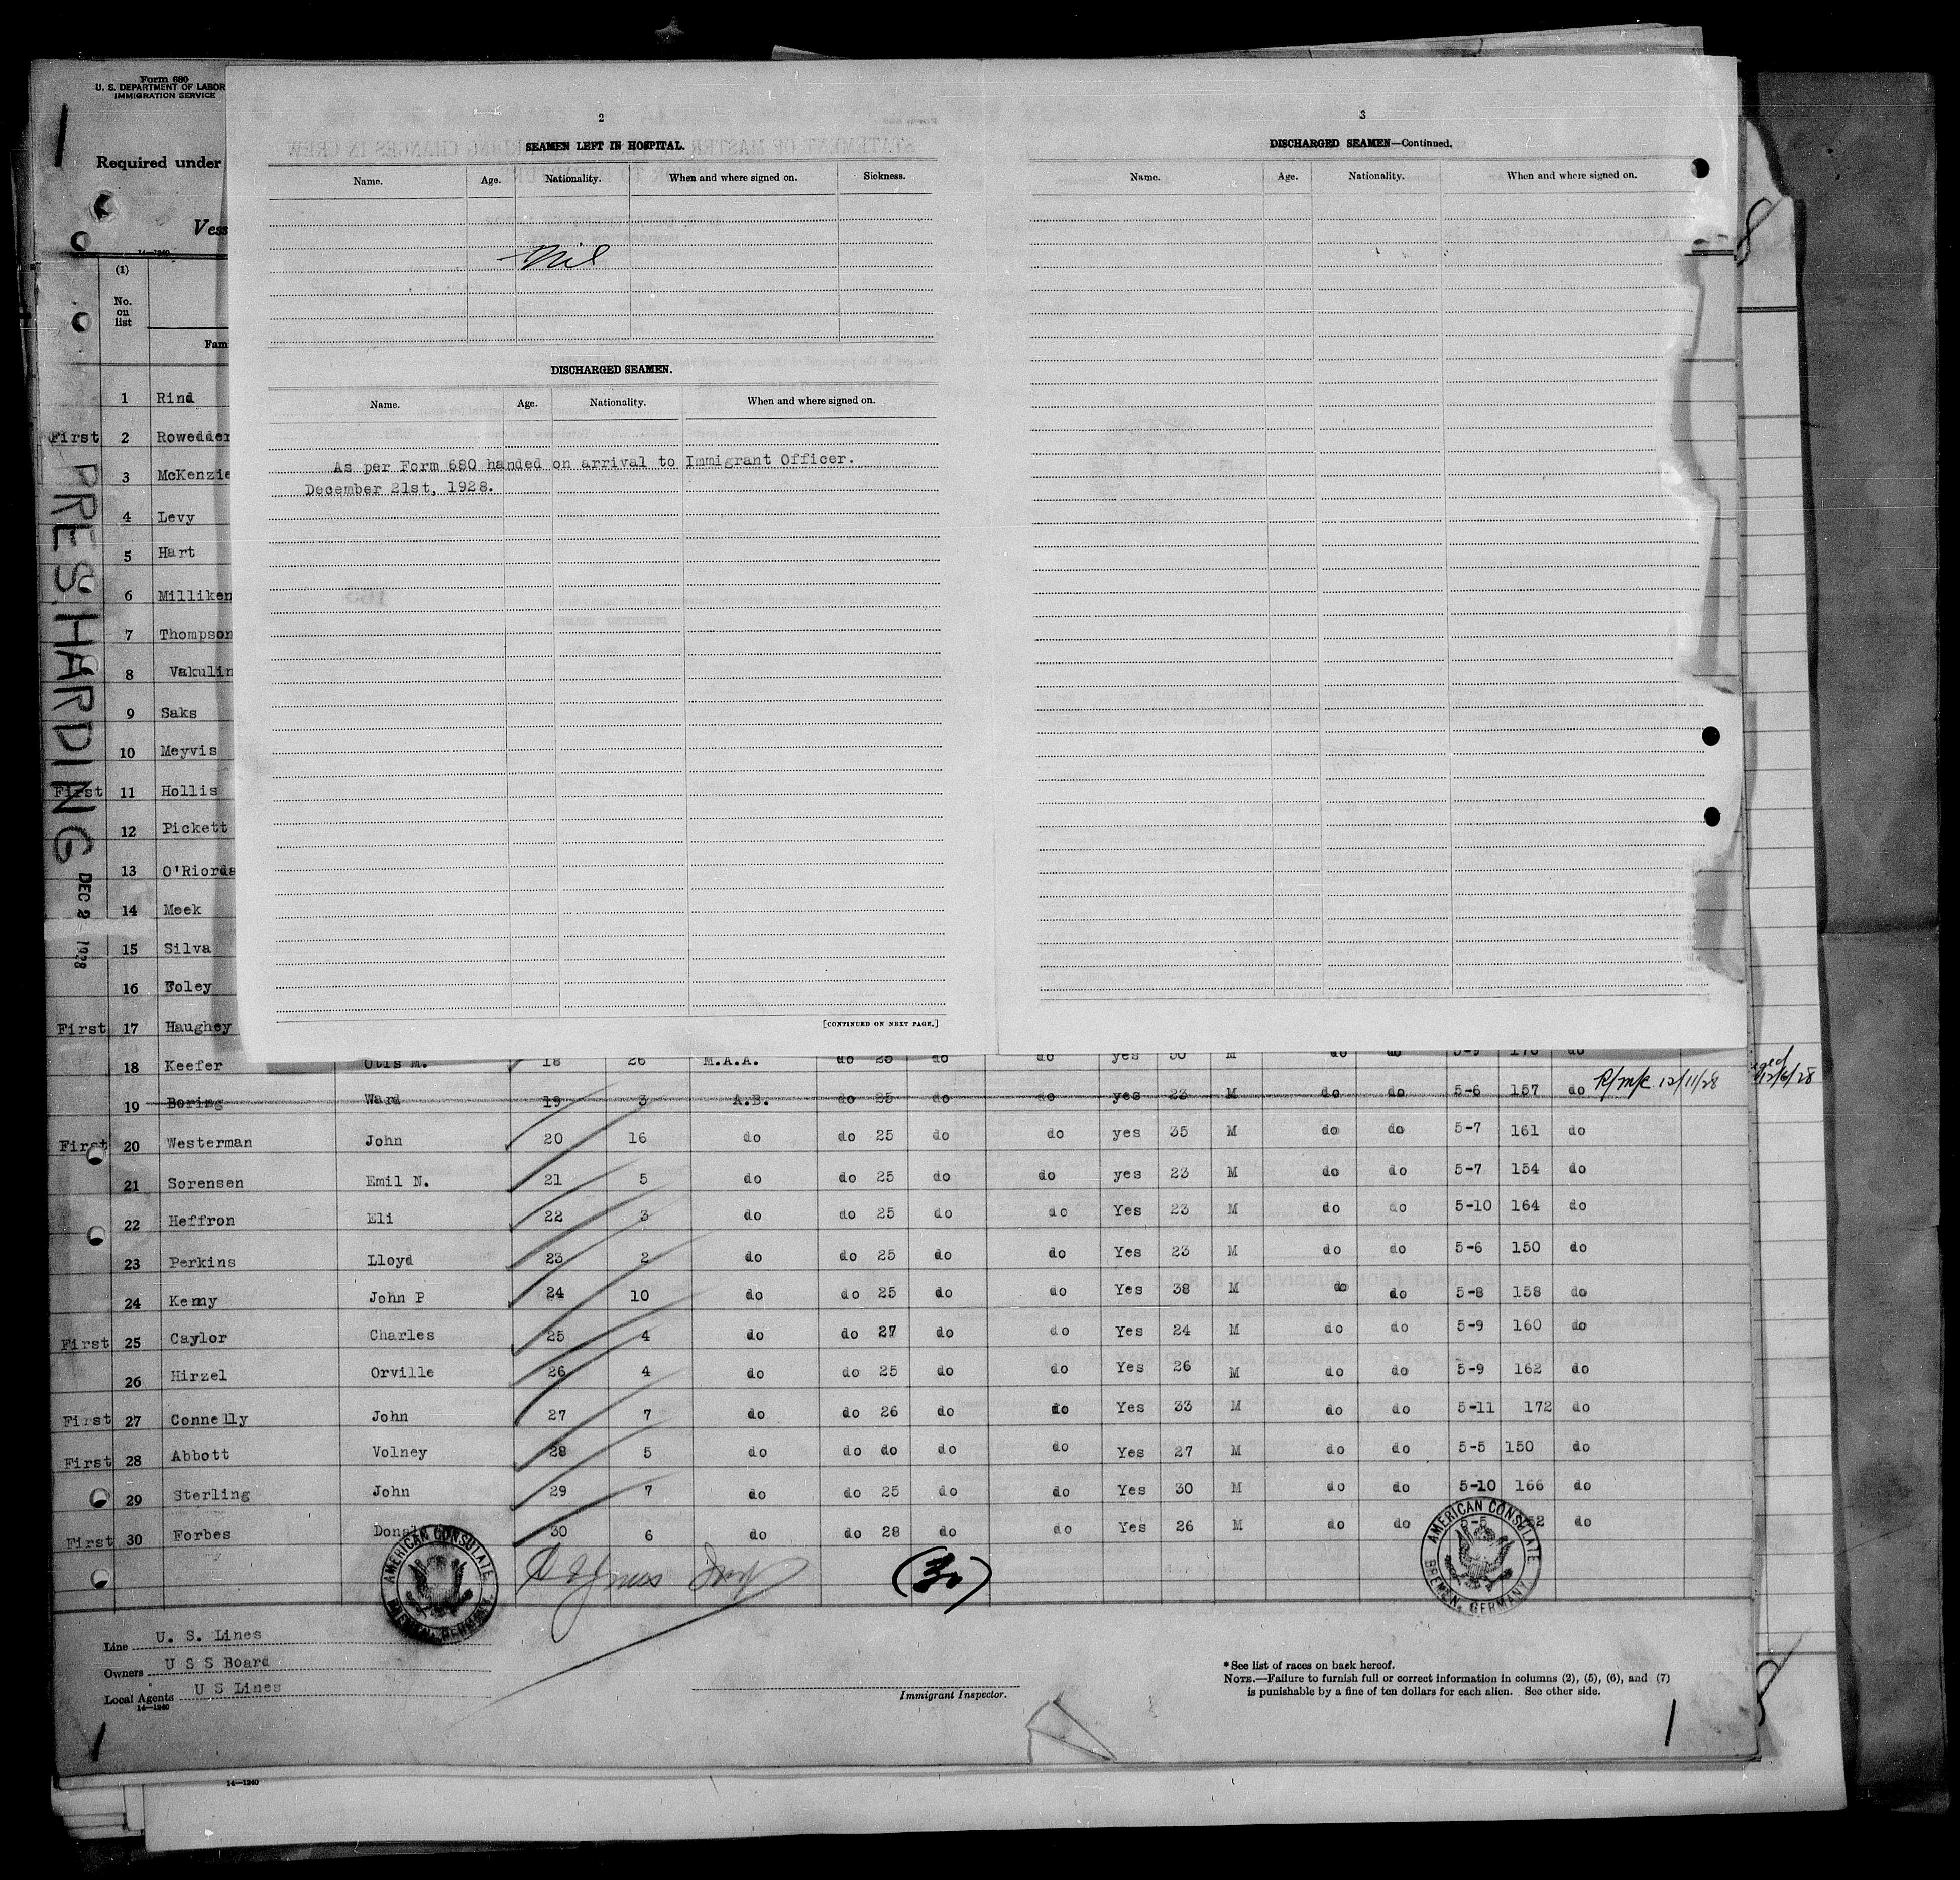 Form 680
U. S. DEPARTMENT OF LABOR
IMMIGRATION SERVICE
Required under
Vess
14—1240
(1)
No.
on
list
Fam
PRES. HARDING
DEC 2 1928
2
SEAMEN LEFT IN HOSPITAL.
Name. Age. Nationality. When and where signed on. Sickness.
Nil
DISCHARGED SEAMEN.
Name. Age. Nationality. When and where signed on.
As per Form 680 handed on arrival to Immigrant Officer.
December 21st, 1928.
[CONTINUED ON NEXT PAGE.]
3
DISCHARGED SEAMEN—Continued.
Name. Age. Nationality. When and where signed on.
1 Rind
First 2 Rowedder
3 McKenzie
4 Levy
5 Hart
6 Milliken
7 Thompson
8 Vakulin
9 Saks
10 Meyvis
First 11 Hollis
12 Pickett
13 O'Riorda
14 Meek
15 Silva
16 Foley
First 17 Haughey
18 Keefer Otis M. 18 26 M.A.A. do 26 do do yes 50 M do do 5-9 170 do
19 Boring Ward 19 3 A.B. do 25 do do yes 23 M do do 5-6 157 do R/m/c 12/11/28
12/6/28
First 20 Westerman John 20 16 do do 25 do do yes 35 M do do 5-7 161 do
21 Sorensen Emil N. 21 5 do do 25 do do yes 23 M do do 5-7 154 do
22 Heffron Eli 22 3 do do 25 do do Yes 23 M do do 5-10 164 do
23 Perkins Lloyd 23 2 do do 25 do do Yes 23 M do do 5-6 150 do
24 Kenny John P 24 10 do do 25 do do Yes 38 M do do 5-8 158 do
First 25 Caylor Charles 25 4 do do 27 do do Yes 24 M do do 5-9 160 do
26 Hirzel Orville 26 4 do do 25 do do Yes 26 M do do 5-9 162 do
First 27 Connelly John 27 7 do do 26 do do Yes 33 M do do 5-11 172 do
First 28 Abbott Volney 28 5 do do do do do Yes 27 M do do 5-5 150 do
29 Sterling John 29 7 do do 25 do do Yes 30 M do do 5-10 166 do
First 30 Forbes Donal 30 6 do do 28 do do Yes 26 M do do 5-5 52 do
AMERICAN CONSULATE
BREMEN, GERMANY
(30)
AMERICAN CONSULATE
BREMEN, GERMANY
Line U. S. Lines
Owners U S S Board
Local Agents U S Lines
14—1240
Immigrant Inspector.
* See list of races on back hereof.
NOTE.—Failure to furnish full or correct information in columns (2), (5), (6), and (7)
is punishable by a fine of ten dollars for each alien. See other side.
14—1240